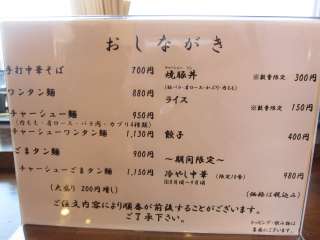 おしながき
手打中華そば 700円
ワンタン麺 880円
チャーシュー麺 950円
チャーシューワンタン麺 1,130円
ごまタン麺 900円
ごまチャーシュー麺 1,150円
(大盛り 200円増し)
焼豚丼 ※数量限定 300円
ライス ※数量限定 150円
餃子 400円
～期間限定～
冷やし中華 (限定10食) 980円
(価格は税込み)
ご注文内容により順番が前後することがございます。
ご了承下さい。